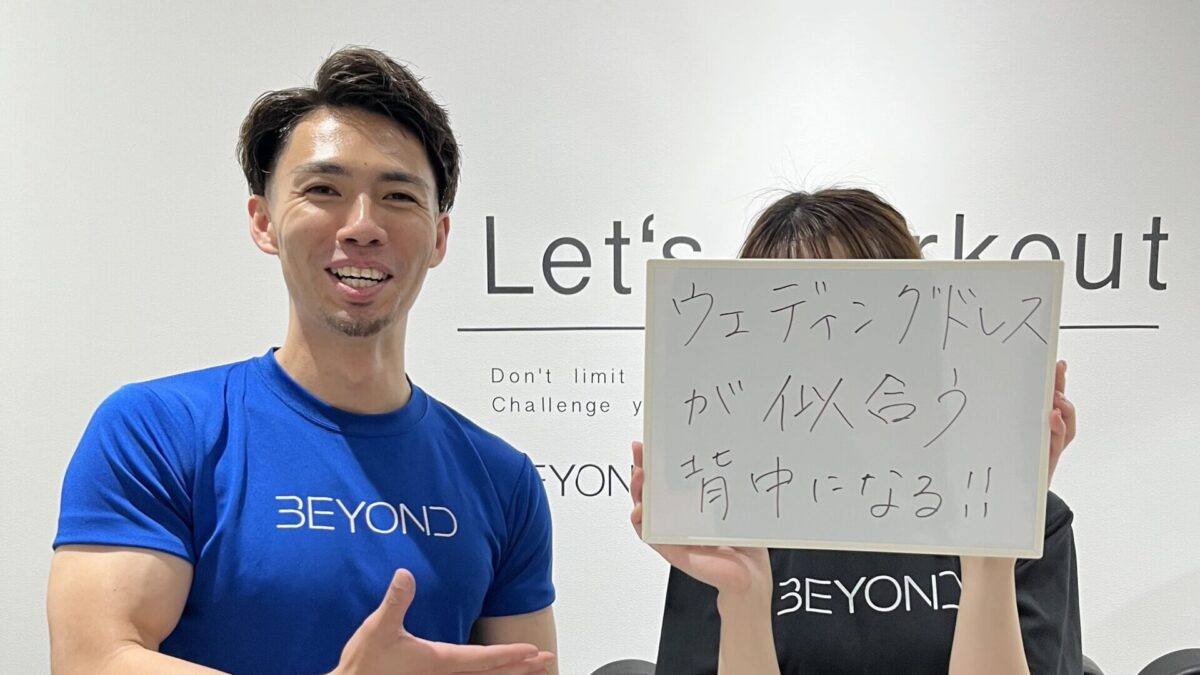 Let's
rkout
Don't limit
Challenge y
EYON
BEYOND
ウェディングドレス
が似合う
背中になる!!
BEYOND